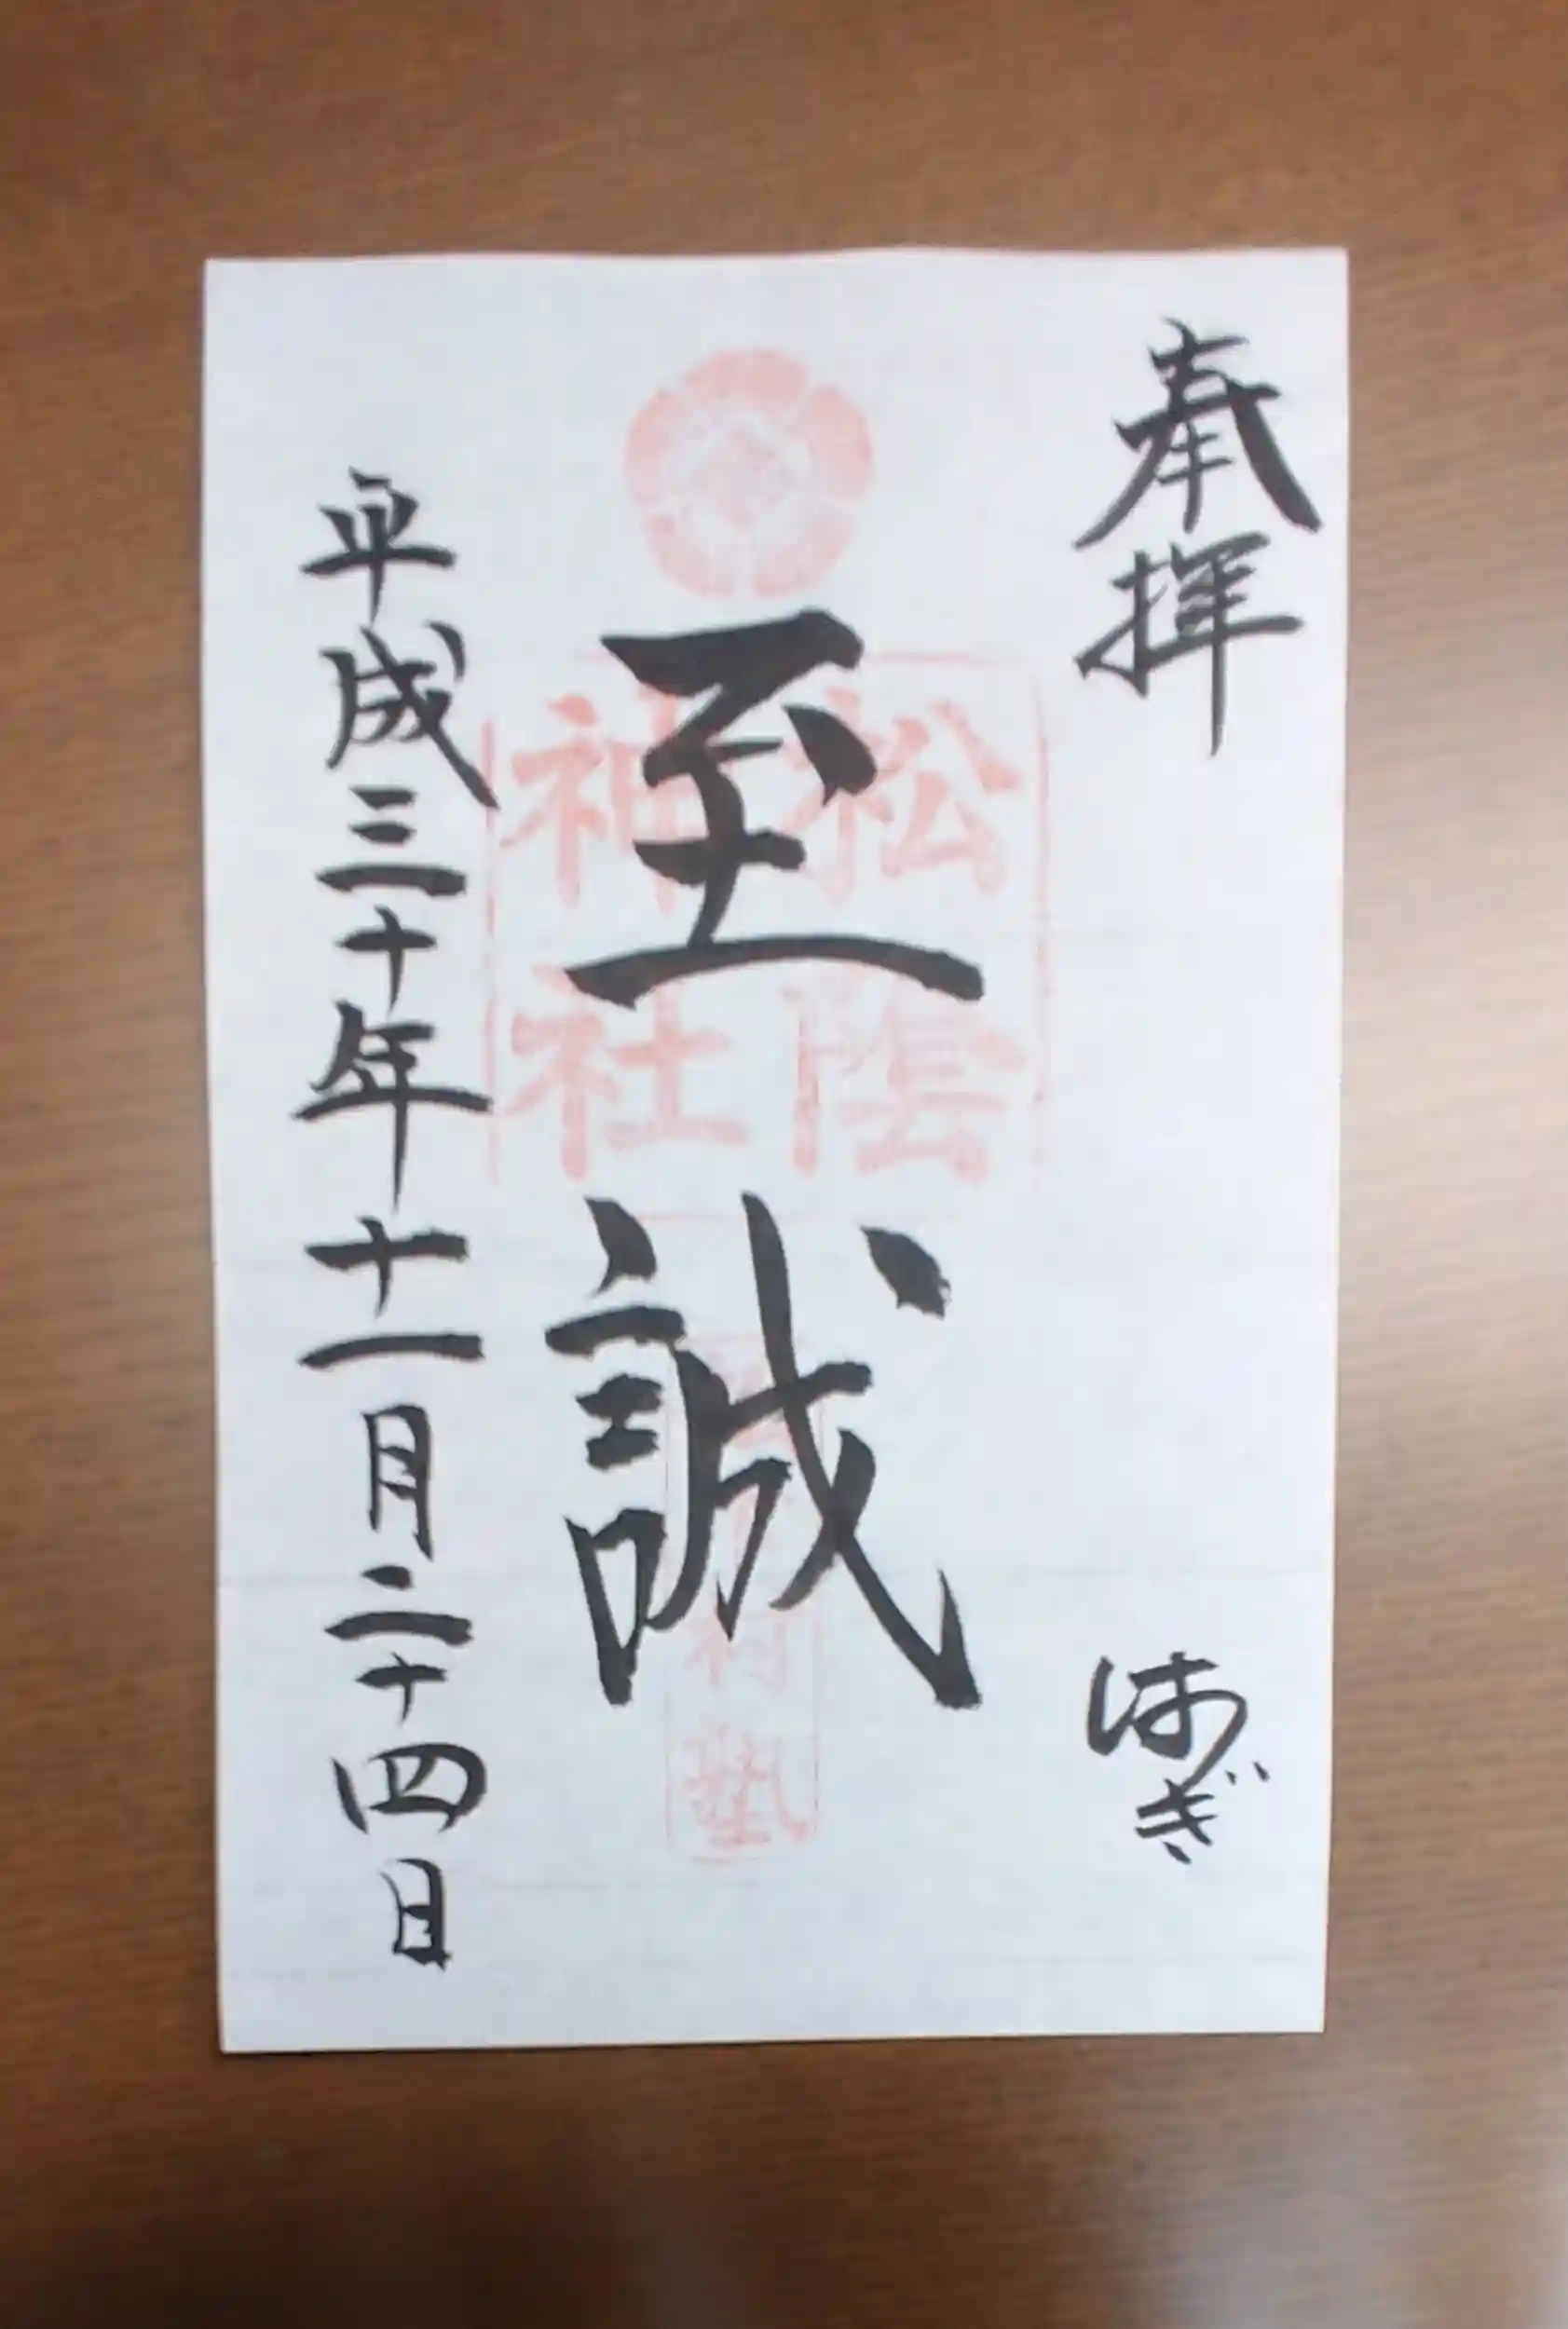 奉拝
はぎ
至誠
松陰
神社
村塾
平成三十年十一月二十四日